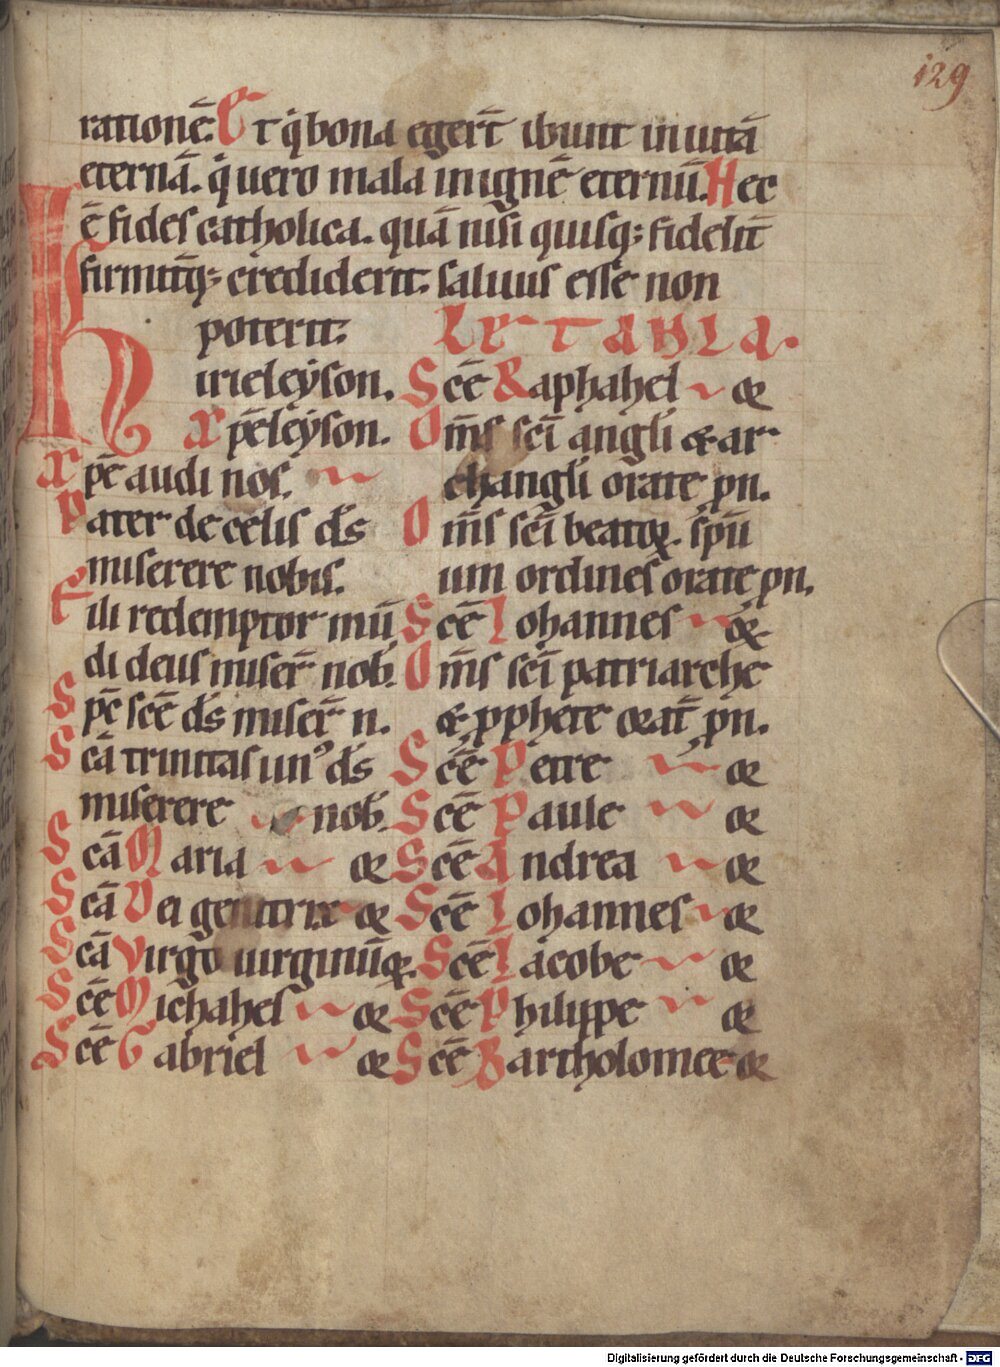 129
rationē. Et q̇ bona egert̄ ibunt in uitā
eternā. q̇ uero mala in ignē eternū. Hec
ē fides catholica. quā nisi quisq; fidelit̄
firmit̄q; crediderit. saluus esse non
poterit.
LETANIA.
Kirieleyson.
xp̄eleyson.
xp̄e audi nos.
Pater de celis d̄s
miserere nobis.
Fili redemptor mū
di deus miser̄ nob.
Sp̄c sc̄e d̄s miser̄ n.
Scā trinitas un᾿ d̄s
miserere nob.
Scā Maria or
Scā Dei genitrix or
Scā Virgo uirginūꝝ.
Scē Michahel or
Scē Gabriel or
Scē Raphahel or
Om̄s scī angli & ar
changli orate pn.
Om̄s scī beatoꝝ. spū
um ordines orate pn.
Scē Iohannes or
Om̄s scī patriarche
& pphete orat̄ pn.
Scē Petre or
Scē Paule or
Scē Andrea or
Scē Iohannes or
Scē Iacobe or
Scē Philippe or
Scē Bartholomee or
Digitalisierung gefördert durch die Deutsche Forschungsgemeinschaft - DFG